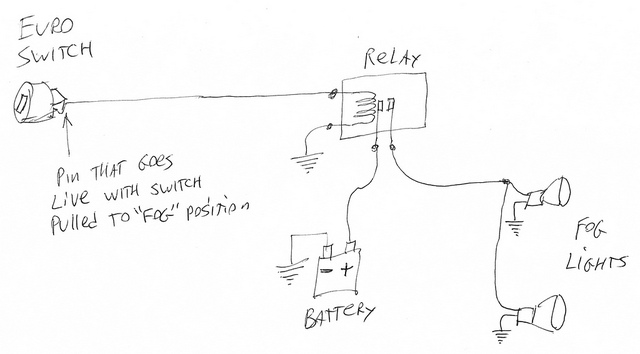 EURO
SWITCH
RELAY
PIN THAT GOES
LIVE WITH SWITCH
PULLED TO "FOG" POSITION
- +
BATTERY
FOG
LIGHTS